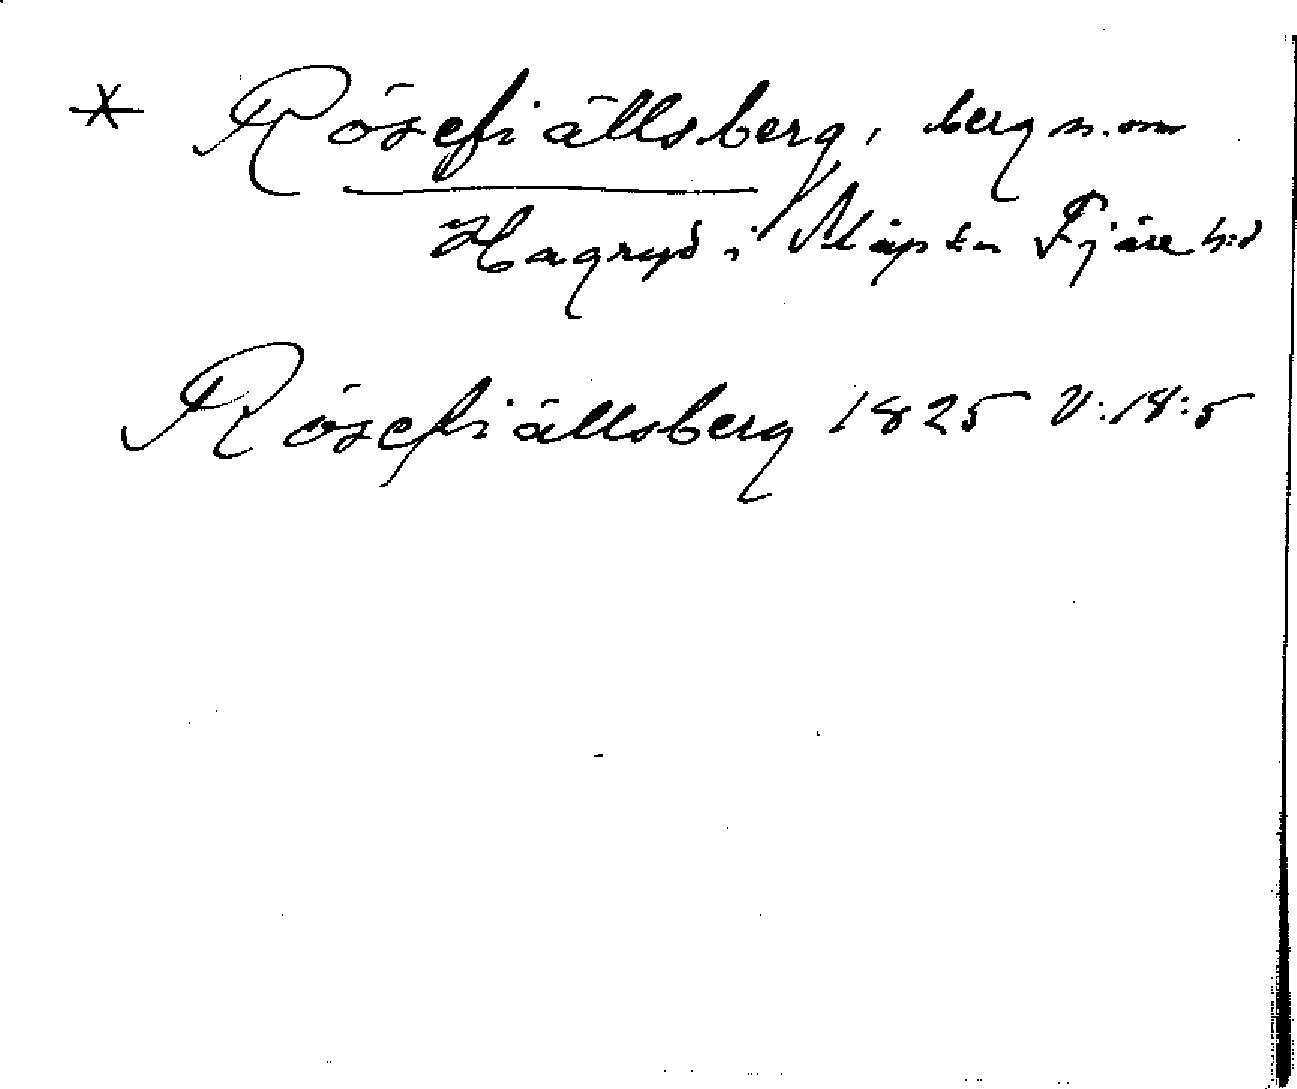 * Rösefiällsberg, berg n. om
Hagryd i Släp sn Fjäre hd
Rösefiällsberg 1825 V:18:5